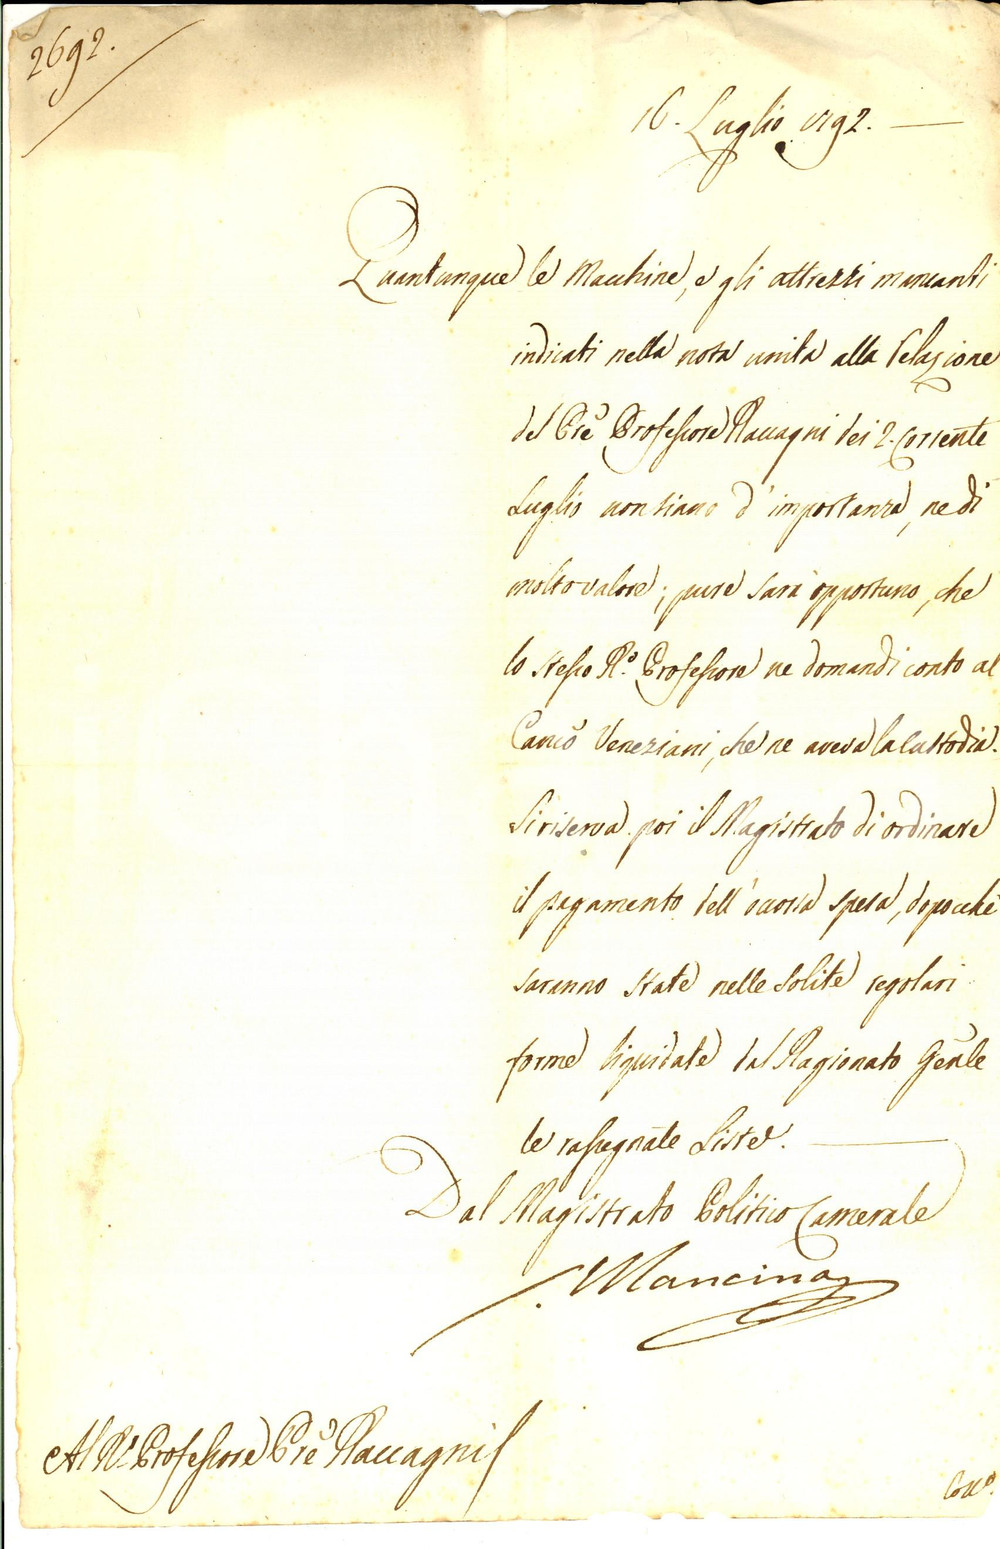 2692.
16. Luglio 1792.
Quantunque le Macchine, e gli attrezzi mancanti
indicati nella nota unita alla Relazione
del Prē Professore Racagni dei 2. Corrente
Luglio non siano d'importanza, ne di
molto valore; pure sarà opportuno, che
lo stesso R.º Professore ne domandi conto al
Veneziani, che ne aveva la custodia.
Si riserva poi il Magistrato di ordinare
il pagamento dell'occorsa spesa, dopocchè
saranno state nelle solite regolari
forme liquidate dal Ragionato Gēnle
le rassegnate Liste.
Dal Magistrato Politico Camerale
Al R.º Professore Prē Racagni